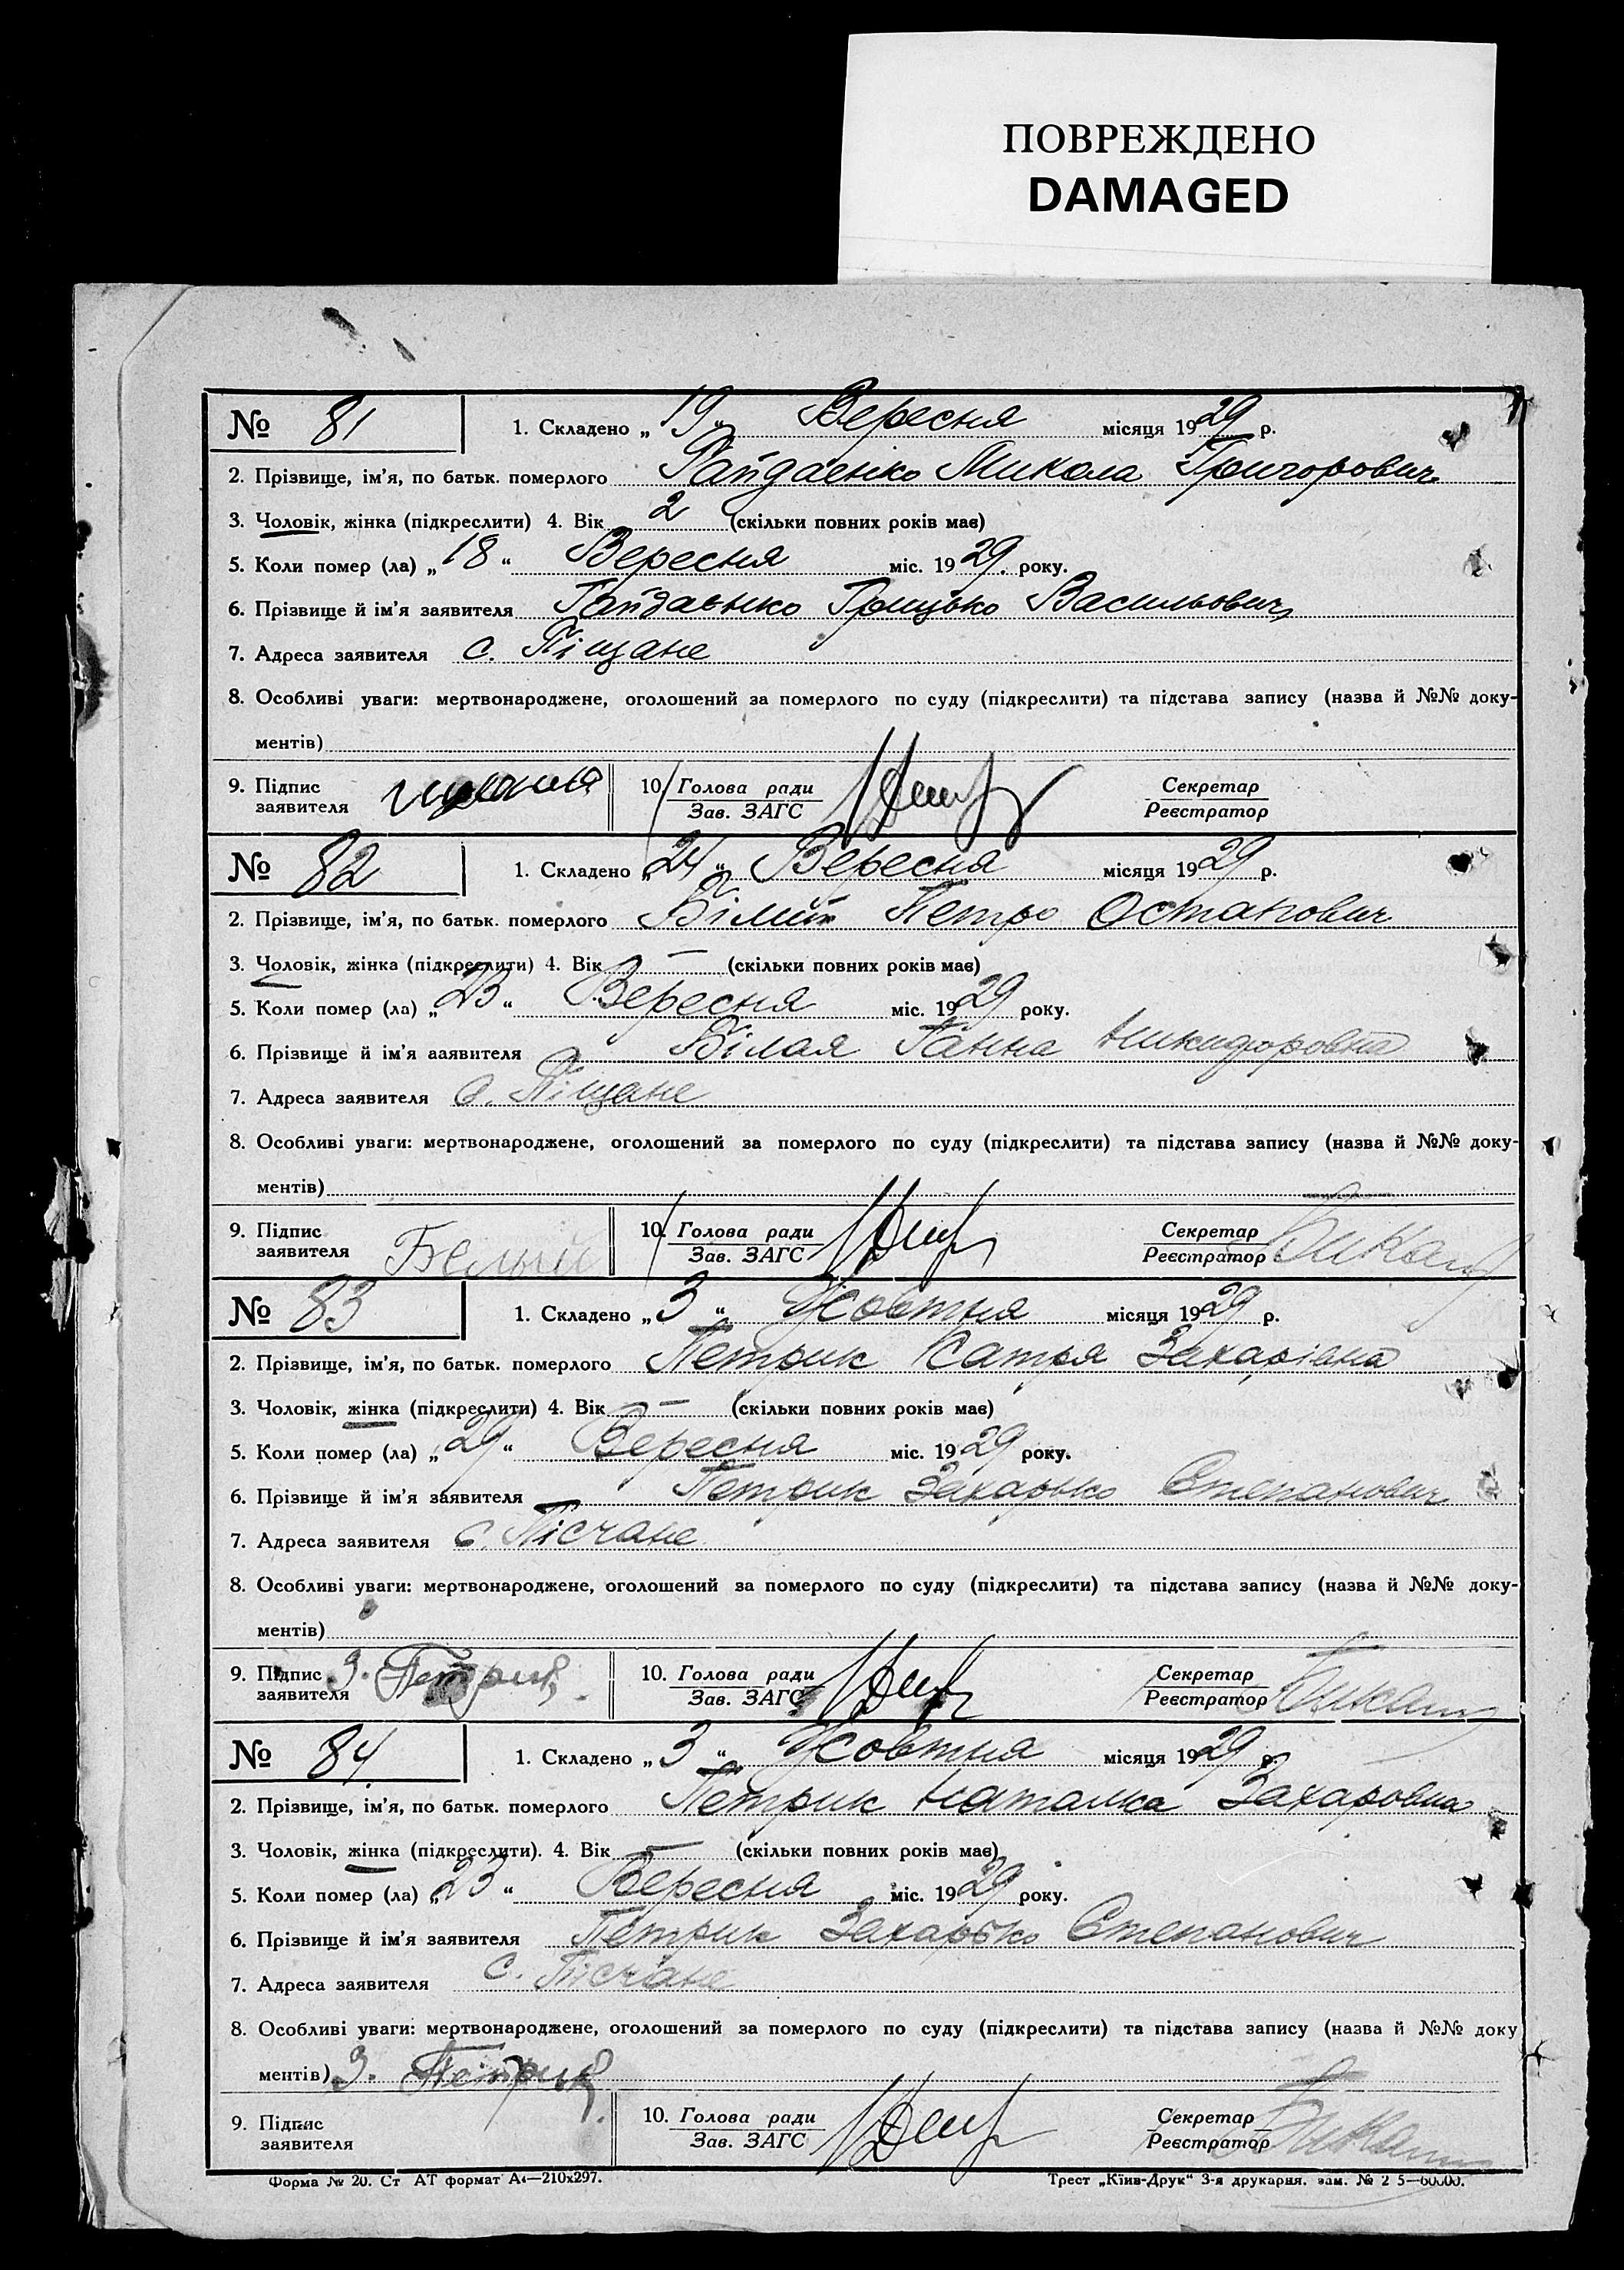 ПОВРЕЖДЕНО
DAMAGED
№ 81 1. Складено „19“ Вересня місяця 1929 р.
2. Прізвище, ім’я, по батьк. померлого Гайдаєнко Микола Григорович
3. Чоловік, жінка (підкреслити) 4. Вік 2 (скільки повних років має)
5. Коли помер (ла) „18“ Вересня міс. 1929. року.
6. Прізвище й ім’я заявителя Гайдаєнко Грицько Васильович
7. Адреса заявителя с. Піщане
8. Особливі уваги: мертвонароджене, оголошений за померлого по суду (підкреслити) та підстава запису (назва й №№ доку-
ментів)
9. Підпис заявителя 10. Голова ради Зав. ЗАГС Секретар Реєстратор
№ 82 1. Складено „24“ Вересня місяця 1929 р.
2. Прізвище, ім’я, по батьк. померлого Білий Петро Остапович
3. Чоловік, жінка (підкреслити) 4. Вік — (скільки повних років має)
5. Коли помер (ла) „23“ Вересня міс. 1929 року.
6. Прізвище й ім’я ааявителя Білая Ганна Никифоровна
7. Адреса заявителя с. Піщане
8. Особливі уваги: мертвонароджене, оголошений за померлого по суду (підкреслити) та підстава запису (назва й №№ доку-
ментів)
9. Підпис заявителя Белый 10. Голова ради Зав. ЗАГС Секретар Реєстратор
№ 83 1. Складено „3“ Жовтня місяця 1929 р.
2. Прізвище, ім’я, по батьк. померлого Петрик Катря Захарівна
3. Чоловік, жінка (підкреслити) 4. Вік — (скільки повних років має)
5. Коли помер (ла) „29“ Вересня міс. 1929 року.
6. Прізвище й ім’я заявителя Петрик Захарько Степанович
7. Адреса заявителя с. Пісчане
8. Особливі уваги: мертвонароджене, оголошений за померлого по суду (підкреслити) та підстава запису (назва й №№ доку-
ментів)
9. Підпис заявителя З. Петрик 10. Голова ради Зав. ЗАГС Секретар Реєстратор
№ 84 1. Складено „3“ Жовтня місяця 1929 р.
2. Прізвище, ім’я, по батьк. померлого Петрик Наталка Захаровна
3. Чоловік, жінка (підкреслити). 4. Вік — (скільки повних років має)
5. Коли помер (ла) „23“ Вересня міс. 1929 року.
6. Прізвище й ім’я заявителя Петрик Захарько Степанович
7. Адреса заявителя с. Пісчане
8. Особливі уваги: мертвонароджене, оголошений за померлого по суду (підкреслити) та підстава запису (назва й №№ доку
ментів) З. Петрик
9. Підпис заявителя 10. Голова ради Зав. ЗАГС Секретар Реєстратор
Форма № 20. Ст АТ формат А4—210х297. Трест „Київ-Друк“ 3-я друкарня. зам. №